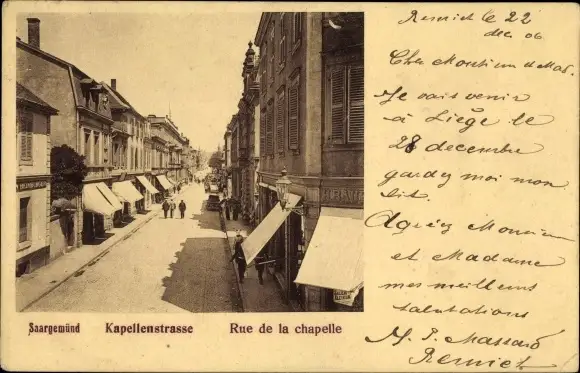 Saargemünd Kapellenstrasse Rue de la chapelle
Remich le 22
dec 06
Cher Monsieur et Mad.
Je vais venir
à Liége le
28 decembre
gardez moi mon
lit.
Agréez Monsieur
et Madame
mes meilleurs
salutations
Remich